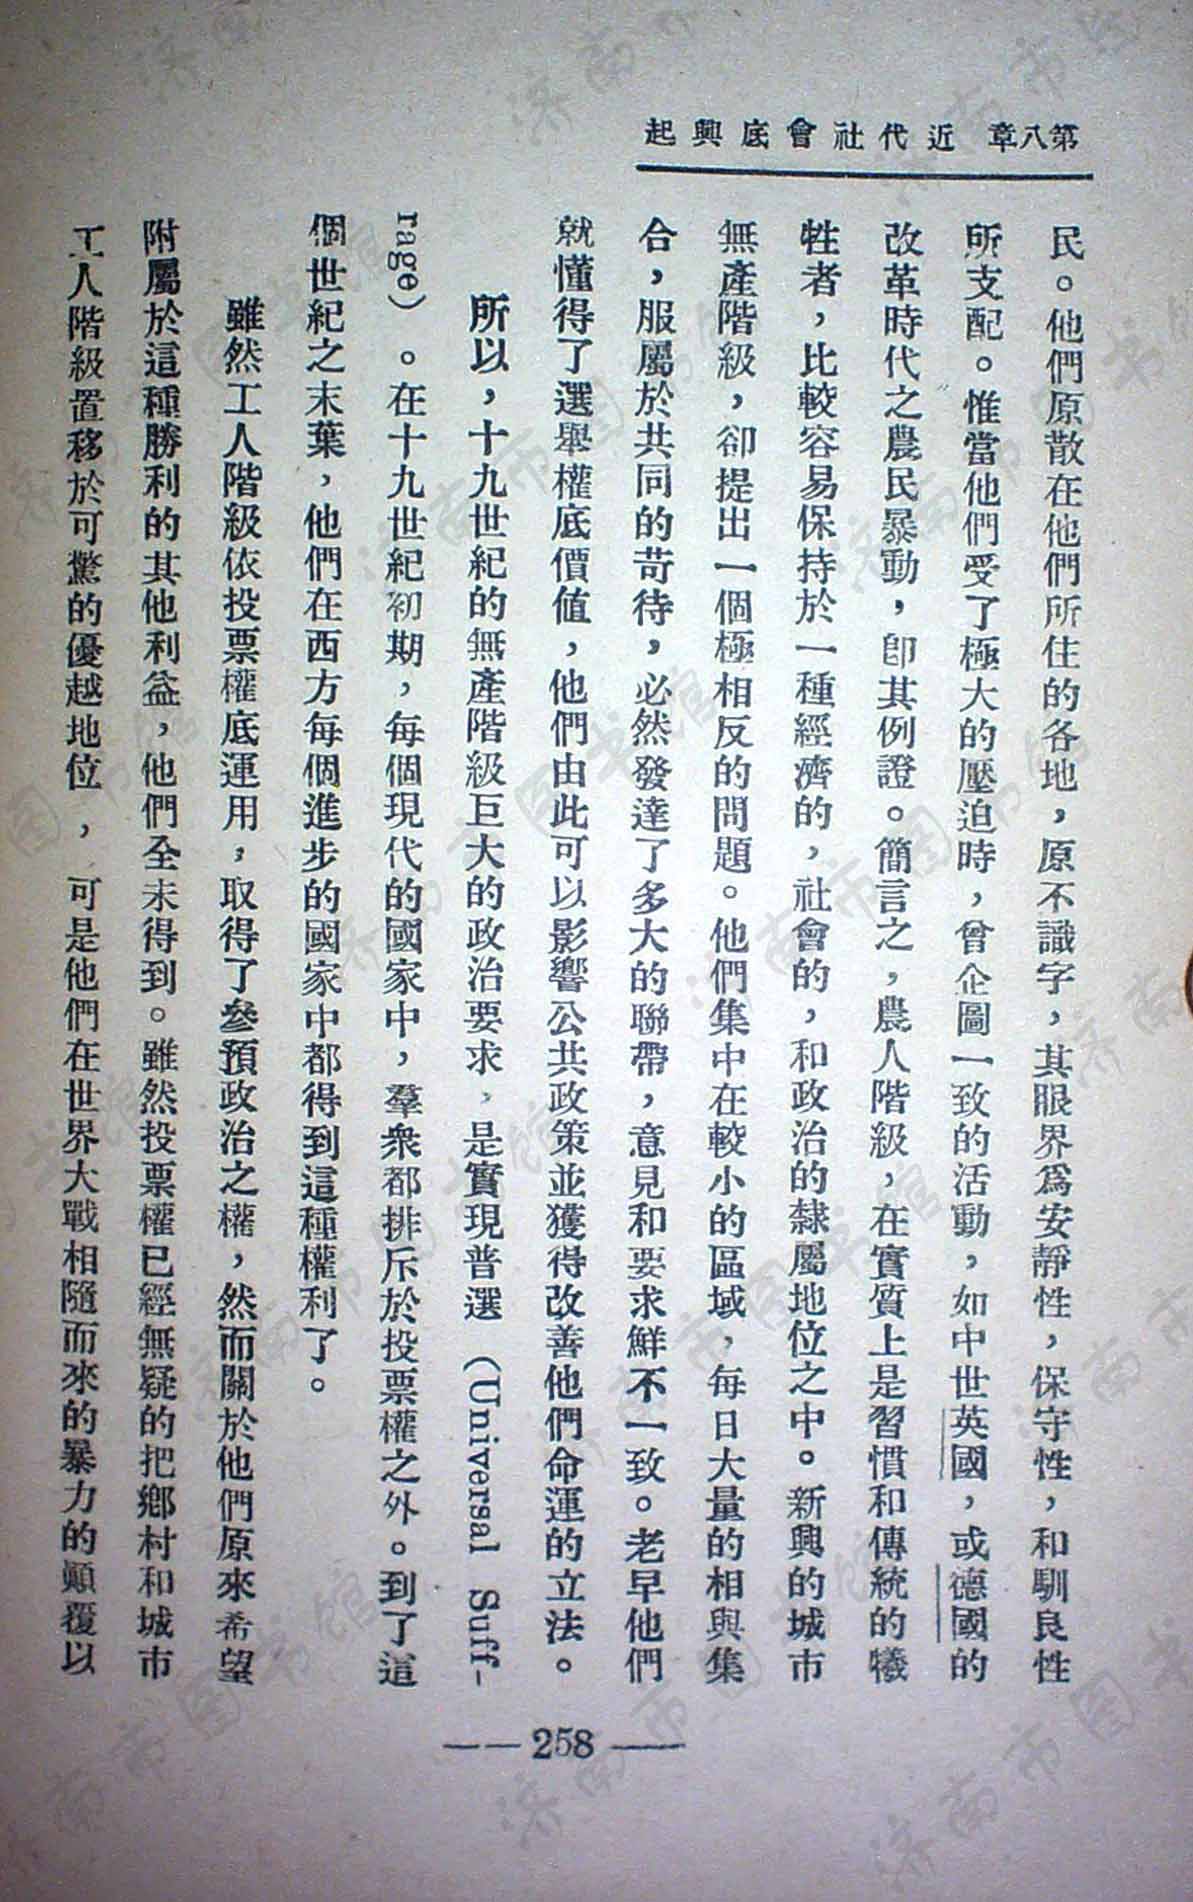 第八章 近代社會底興起
民。他們原散在他們所住的各地，原不識字，其眼界爲安靜性，保守性，和馴良性
所支配。惟當他們受了極大的壓迫時，曾企圖一致的活動，如中世英國，或德國的
改革時代之農民暴動，卽其例證。簡言之，農人階級，在實質上是習慣和傳統的犧
牲者，比較容易保持於一種經濟的，社會的，和政治的隸屬地位之中。新興的城市
無產階級，卻提出一個極相反的問題。他們集中在較小的區域，每日大量的相與集
合，服屬於共同的苛待，必然發達了多大的聯帶，意見和要求鮮不一致。老早他們
就懂得了選舉權底價值，他們由此可以影響公共政策並獲得改善他們命運的立法。
所以，十九世紀的無產階級巨大的政治要求，是實現普選（Universal Suff-
rage）。在十九世紀初期，每個現代的國家中，羣衆都排斥於投票權之外。到了這
個世紀之末葉，他們在西方每個進步的國家中都得到這種權利了。
雖然工人階級依投票權底運用，取得了參預政治之權，然而關於他們原來希望
附屬於這種勝利的其他利益，他們全未得到。雖然投票權已經無疑的把鄉村和城市
工人階級置移於可驚的優越地位，可是他們在世界大戰相隨而來的暴力的顚覆以
——258——
济南市图书馆